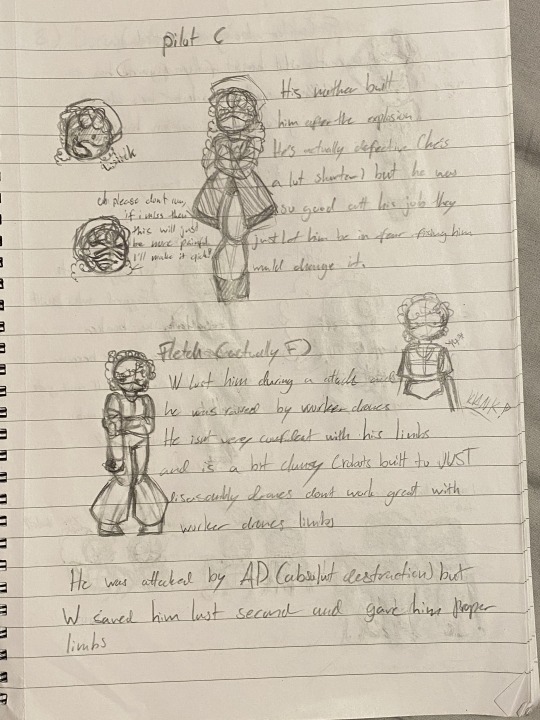 pilot C
His mother built
him after the explosion
He's actually defective (he's
a lot shorter) but he was
so good at his job they
just let him be in fear fixing him
would change it.
oh please dont run,
if i miss then
this will just
be more painful
I'll make it quick!
Fletch (actually F)
W lost him during a attack and
he was raised by worker drones
He isnt very confident with his limbs
and is a bit clumsy (robots built to JUST
disassembly drones dont work great with
worker drones limbs
KLNK
He was attacked by AD (absolut destraction) but
W saved him last second and gave him proper
limbs